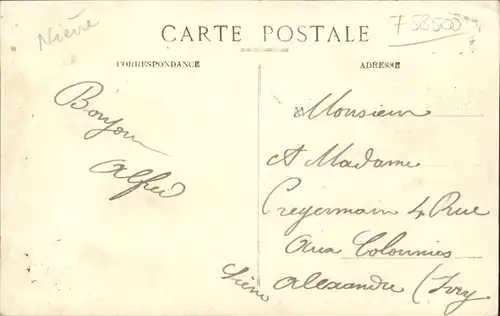 Nièvre
CARTE POSTALE
758500
CORRESPONDANCE
ADRESSE
Bonjour
Alfred
Monsieur
et Madame
Creyermain 4 Rue
aux Colonnies
Alexandre (Ivry
Seine